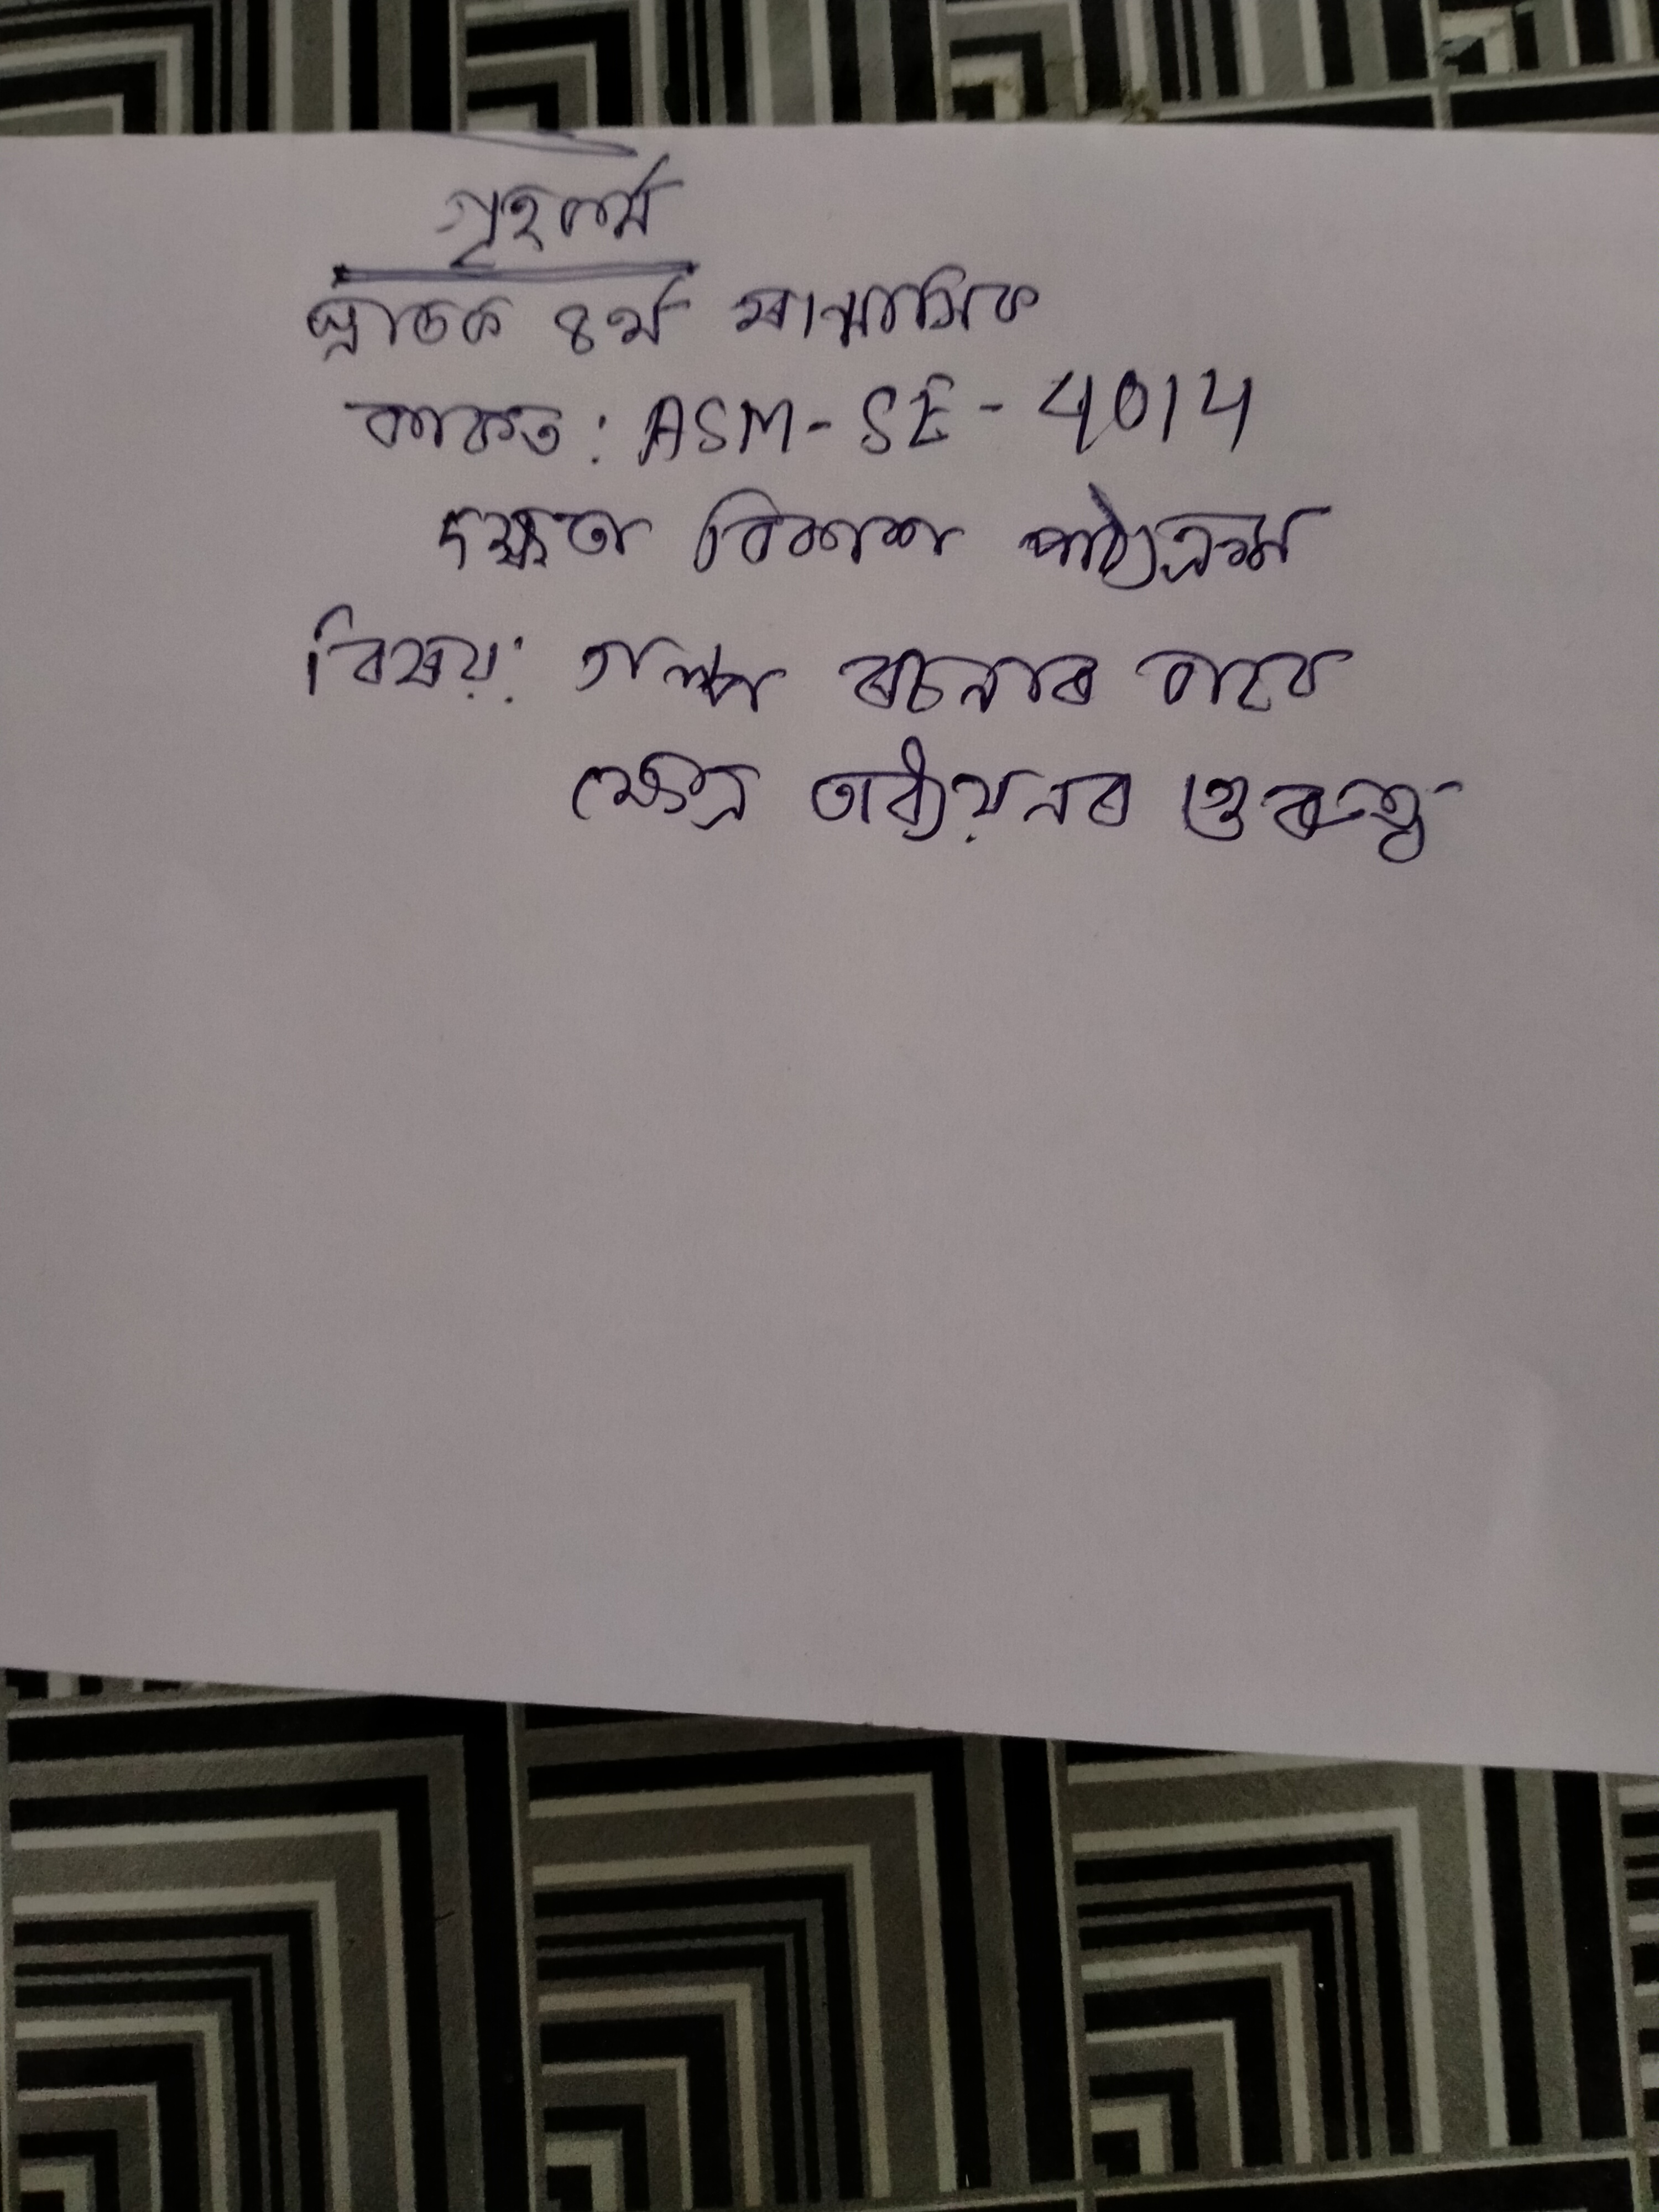 গৃহকৰ্ম
স্নাতক ৪ৰ্থ ষাণ্মাসিক
কাকত : ASM-SE-4014
দক্ষতা বিকাশ পাঠ্যক্ৰম
বিষয়: গল্প ৰচনাৰ বাবে
ক্ষেত্ৰ অধ্যয়নৰ গুৰুত্ব